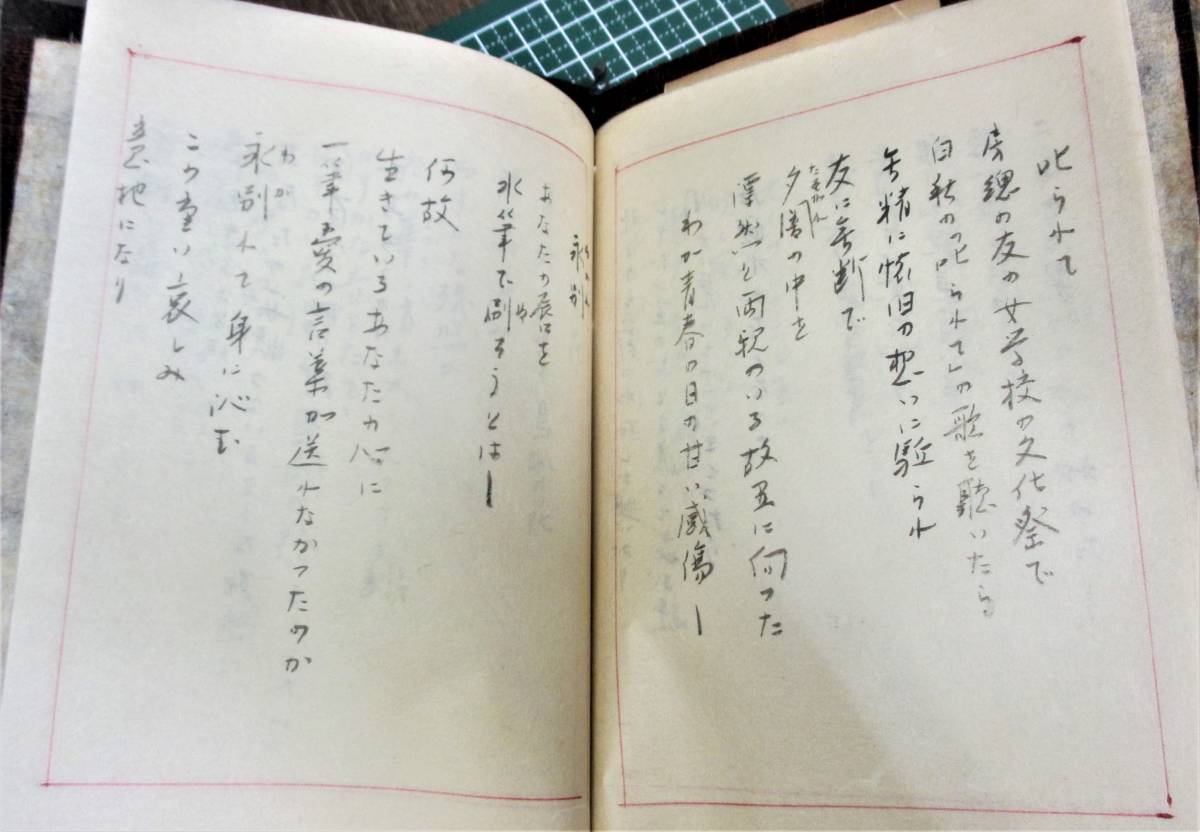 叱られて
房総の友の女学校の文化祭で
白秋の「叱られて」の歌を聴いたら
無精に懐旧の想いに駈られ
友に無断で
たそがれ
夕闇の中を
漂然と両親のいる故里に向った
わが青春の日の甘い感傷ー
永別
あなたの唇を
水筆で刷ろうとはー
何故
生きているあなたの心に
一筆愛の言葉が送れなかったのか
わか
永別れて身に沁む
この重い哀しみ
意地になり